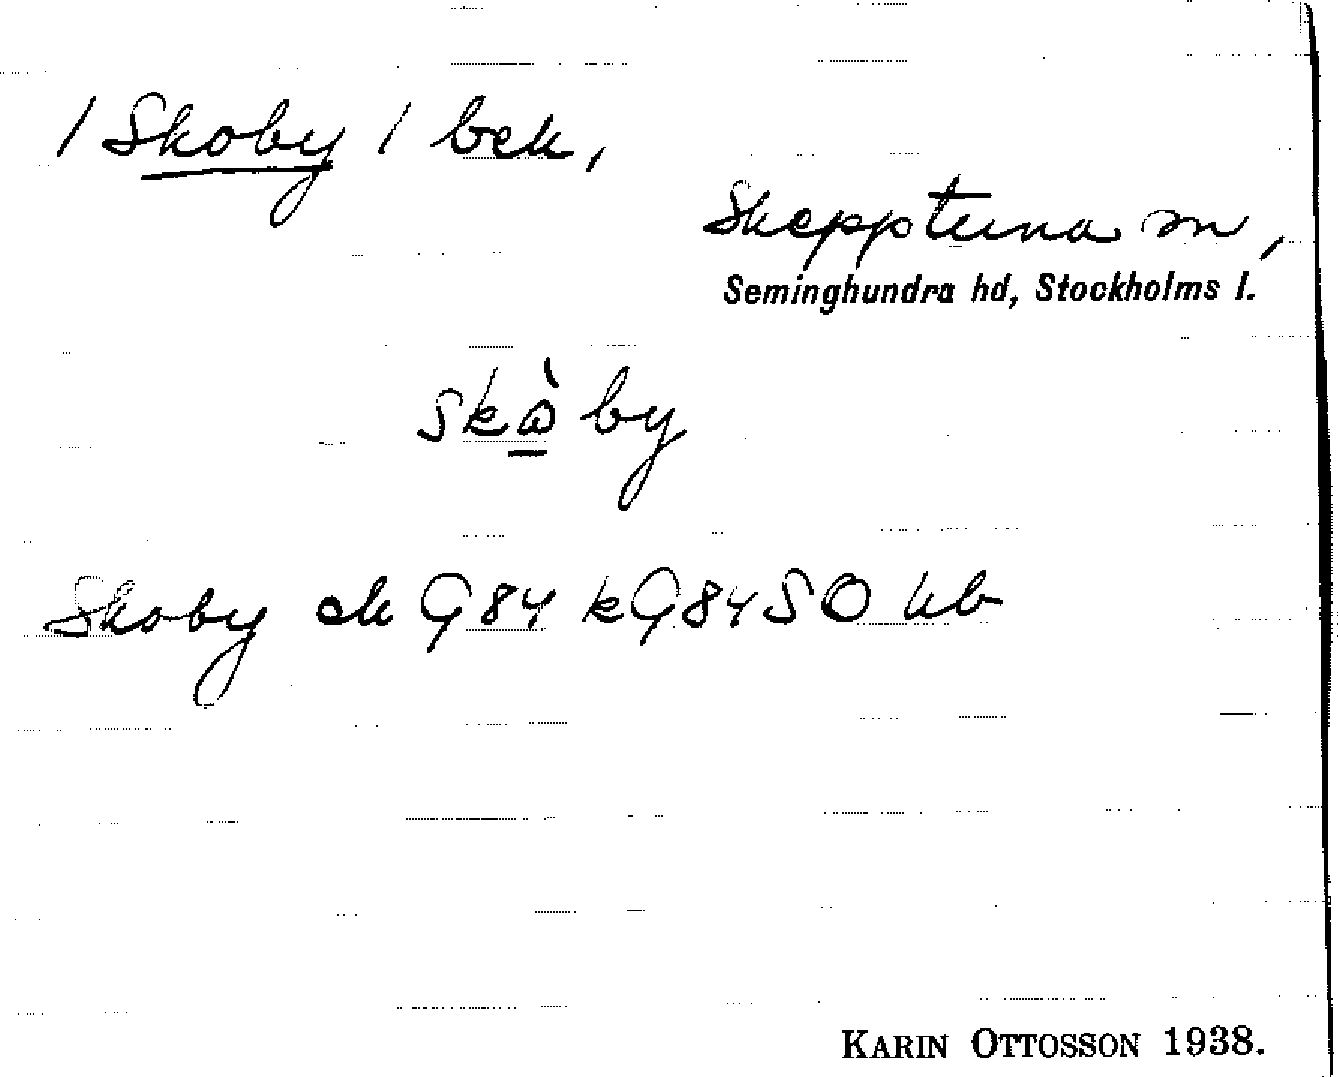 / Skoby / bek,
Skepptuna sn,
Seminghundra hd, Stockholms l.
skὼby
Skoby ek G84 kG84SO hb
KARIN OTTOSSON 1938.